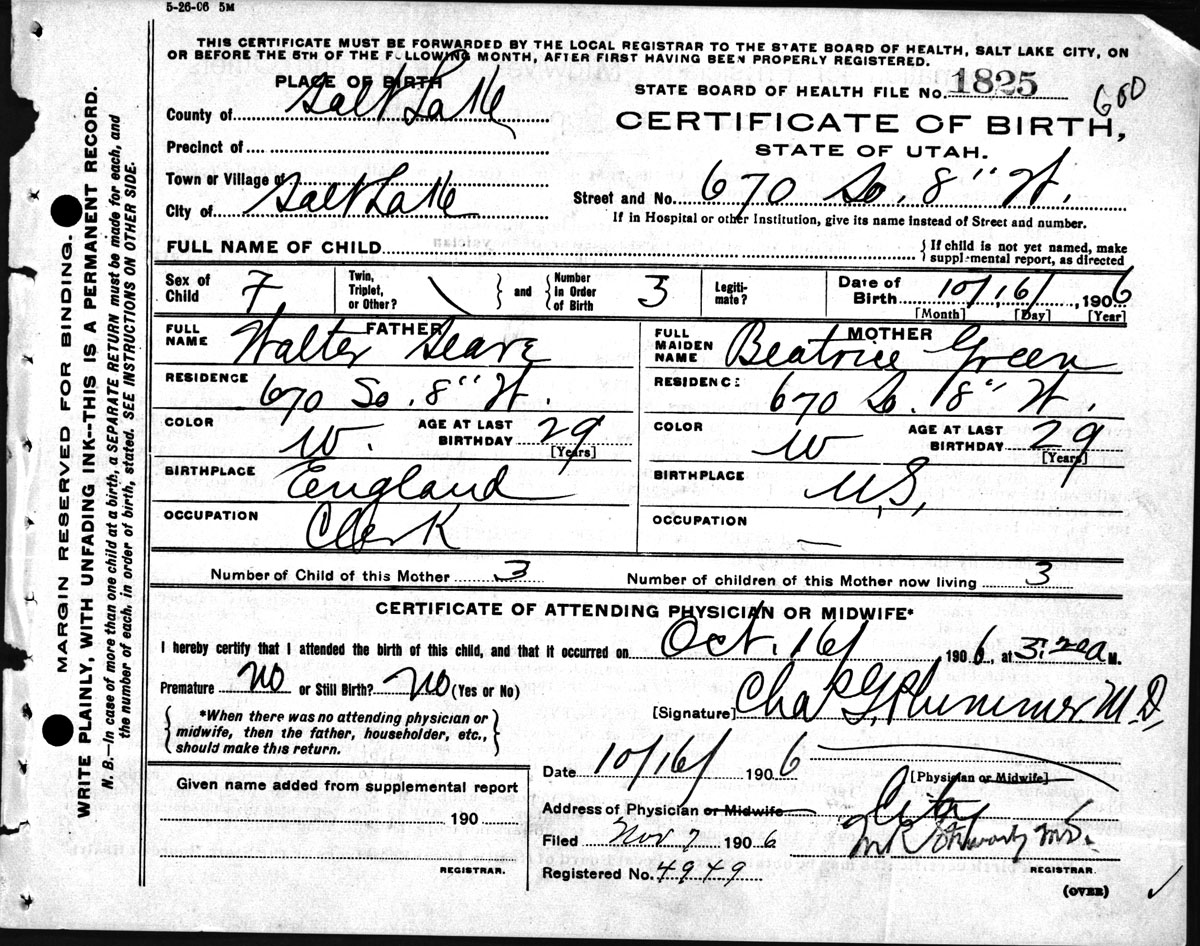 5-26-06 5M
THIS CERTIFICATE MUST BE FORWARDED BY THE LOCAL REGISTRAR TO THE STATE BOARD OF HEALTH, SALT LAKE CITY, ON
OR BEFORE THE 5TH OF THE FOLLOWING MONTH, AFTER FIRST HAVING BEEN PROPERLY REGISTERED.
PLACE OF BIRTH
STATE BOARD OF HEALTH FILE No. 1825
600
County of Salt Lake
CERTIFICATE OF BIRTH,
STATE OF UTAH.
Precinct of
Town or Village of
Street and No. 670 So. 8" W.
City of Salt Lake
If in Hospital or other Institution, give its name instead of Street and number.
FULL NAME OF CHILD
{If child is not yet named, make
supplemental report, as directed
Sex of Child F
Twin, Triplet, or Other? \ } and { Number In Order of Birth 3
Legitimate?
Date of Birth 10/16/, 1906
[Month] [Day] [Year]
FATHER
FULL NAME Walter
RESIDENCE 670 So. 8" W.
COLOR W. AGE AT LAST BIRTHDAY 29
[Years]
BIRTHPLACE England
OCCUPATION Clerk
MOTHER
FULL MAIDEN NAME Beatrice Green
RESIDENCE 670 So. 8" W.
COLOR W AGE AT LAST BIRTHDAY 29
[Years]
BIRTHPLACE U.S.
OCCUPATION —
Number of Child of this Mother 3
Number of children of this Mother now living 3
CERTIFICATE OF ATTENDING PHYSICIAN OR MIDWIFE*
I hereby certify that I attended the birth of this child, and that it occurred on Oct. 16/ 1906, at 3:20 a M.
Premature No or Still Birth? No (Yes or No)
[Signature] Chas G. Plummer M.D.
{*When there was no attending physician or
midwife, then the father, householder, etc.,
should make this return.}
Date 10/16/ 1906
[Physician or Midwife]
Given name added from supplemental report
190
REGISTRAR.
Address of Physician or Midwife City
Filed Nov 7 1906
M.D.
Registered No. 4949
REGISTRAR.
(OVER)
MARGIN RESERVED FOR BINDING.
WRITE PLAINLY, WITH UNFADING INK--THIS IS A PERMANENT RECORD.
N. B.—In case of more than one child at a birth, a SEPARATE RETURN must be made for each, and
the number of each, in order of birth, stated. SEE INSTRUCTIONS ON OTHER SIDE.